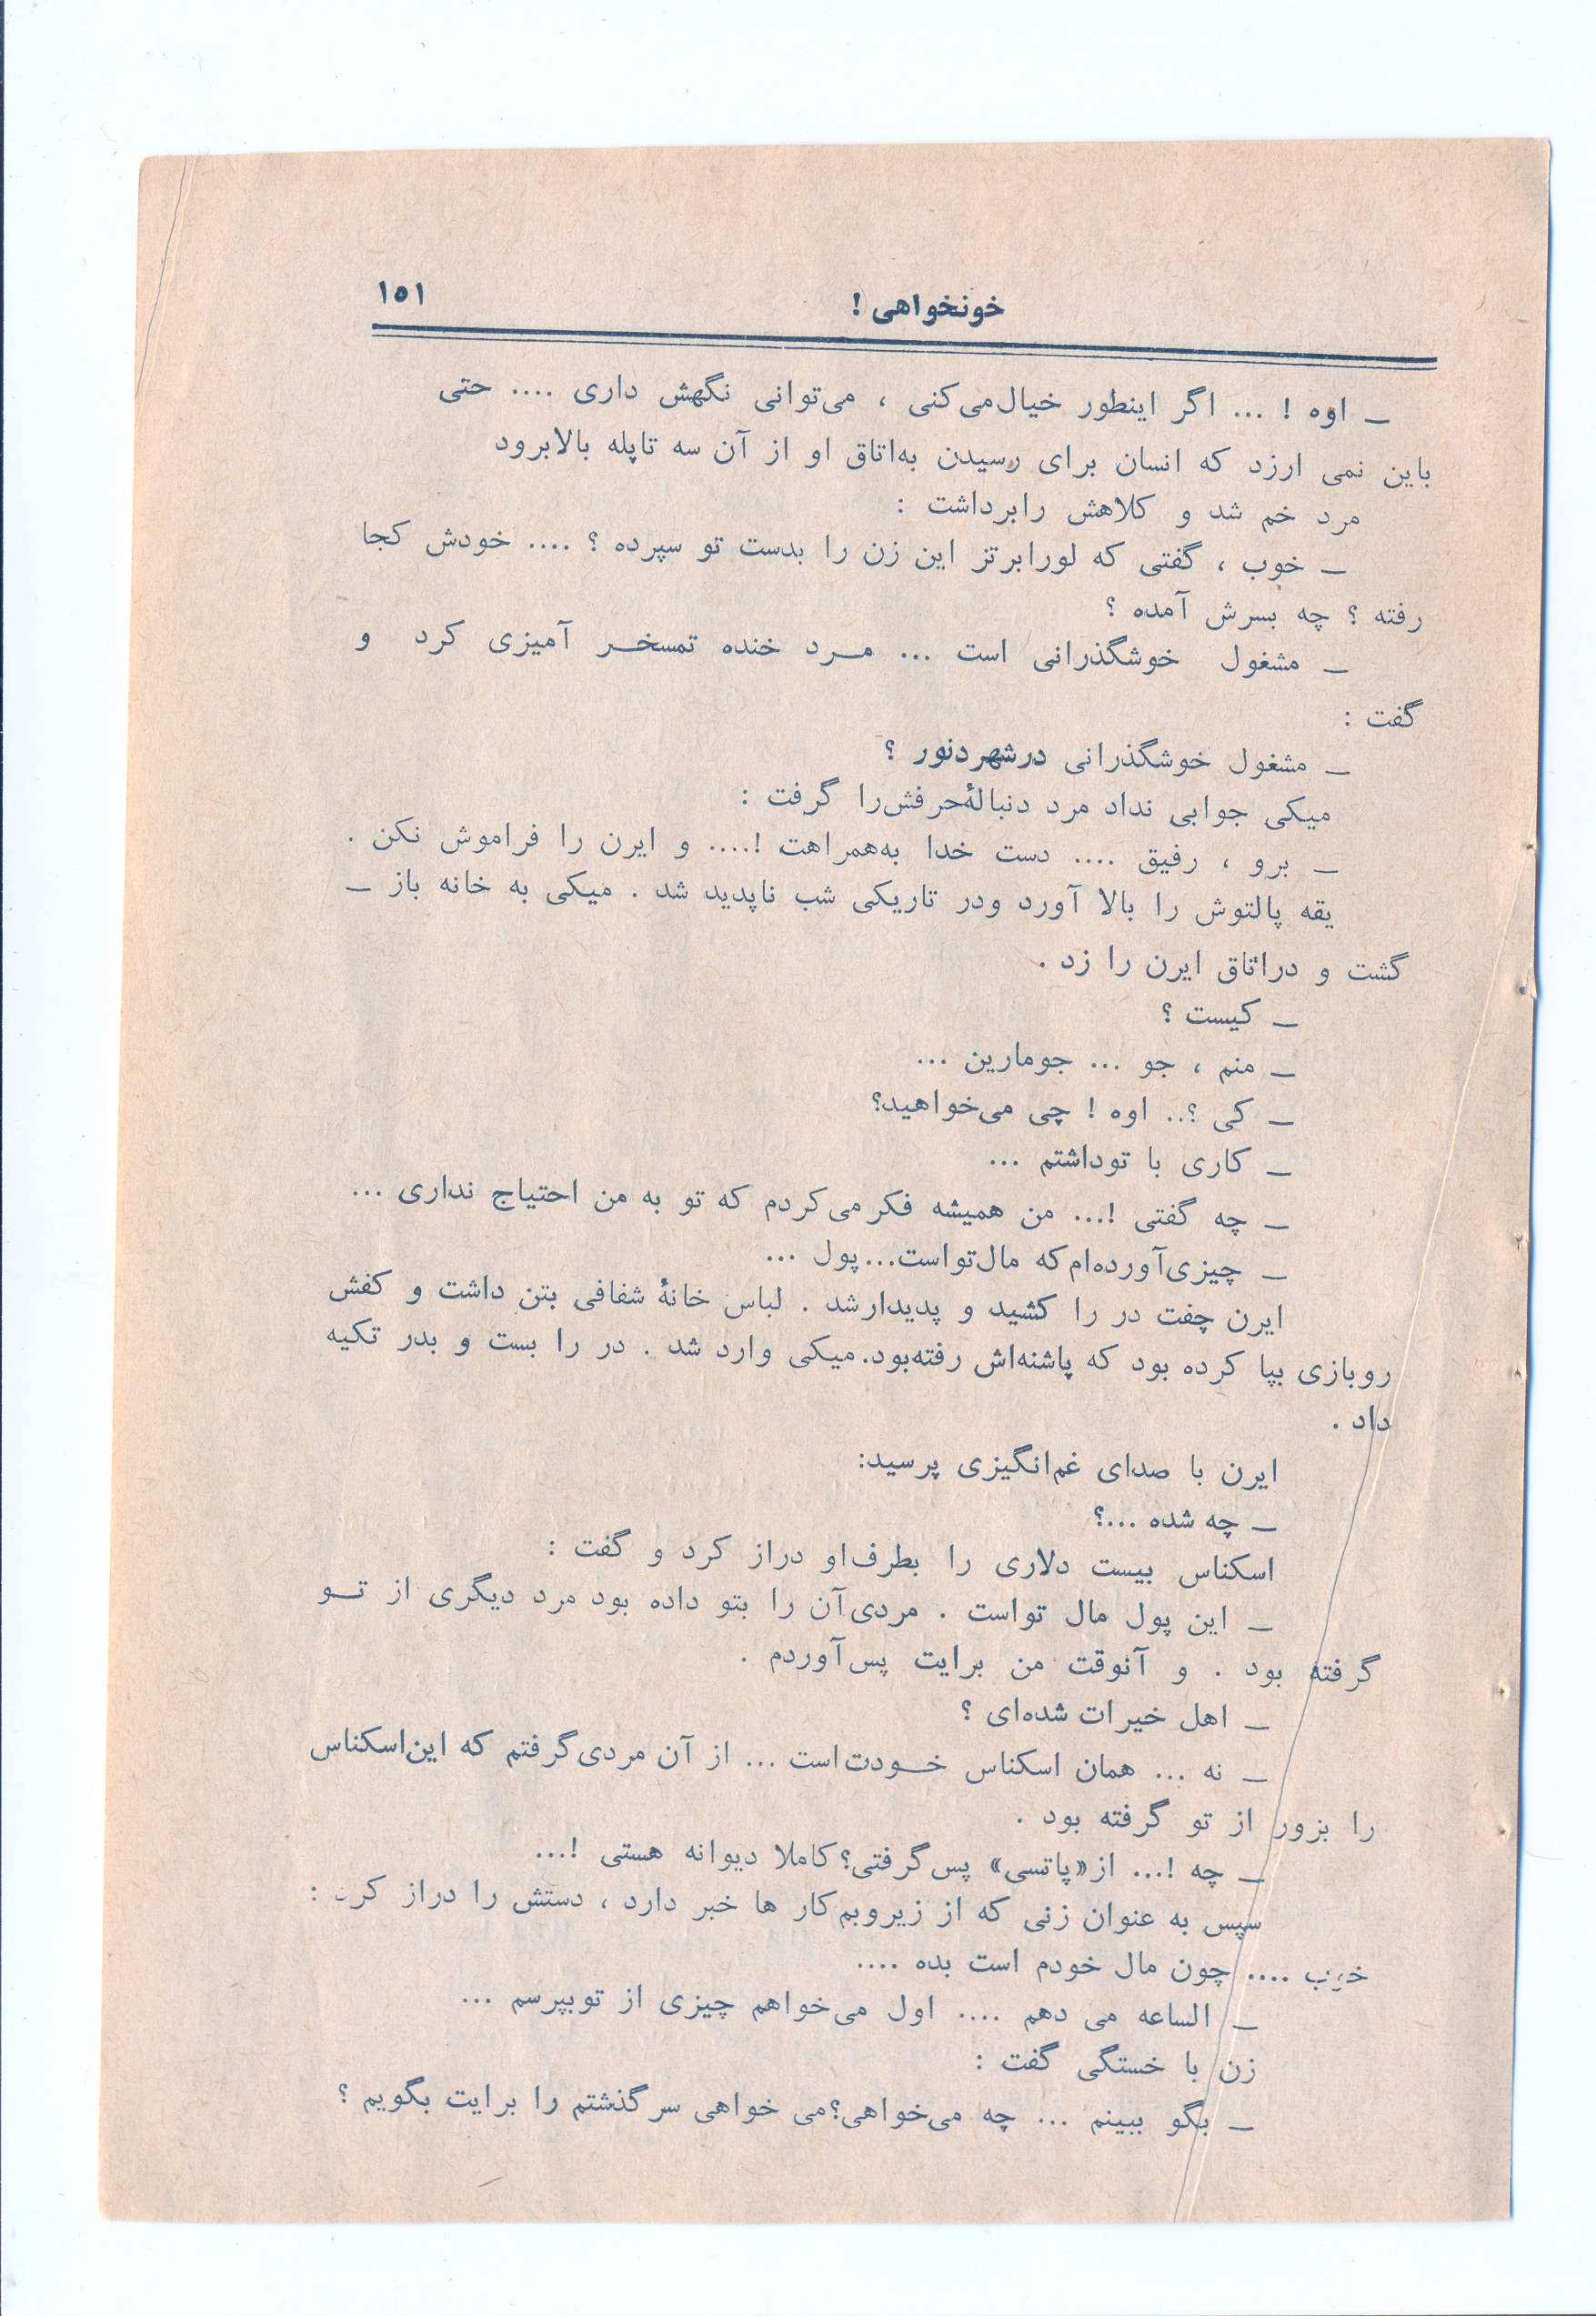 خونخواهی ! ۱۵۱
ـ اوه ! ... اگر اینطور خیال‌می‌کنی ، می‌توانی نگهش داری .... حتی
باین نمی ارزد که انسان برای رسیدن به‌اتاق او از آن سه تاپله بالابرود
مرد خم شد و کلاهش رابرداشت :
ـ خوب ، گفتی که لورابرتز این زن را بدست تو سپرده ؟ .... خودش کجا
رفته ؟ چه بسرش آمده ؟
ـ مشغول خوشگذرانی است ... مـرد خنده تمسخـر آمیزی کرد و
گفت :
ـ مشغول خوشگذرانی درشهردنور ؟
میکی جوابی نداد مرد دنبالهٔحرفش‌را گرفت :
ـ برو ، رفیق .... دست خدا به‌همراهت !.... و ایرن را فراموش نکن .
یقه پالتوش را بالا آورد ودر تاریکی شب ناپدید شد . میکی به خانه باز ـ
گشت و دراتاق ایرن را زد .
ـ کیست ؟
ـ منم ، جو ... جومارین ...
ـ کی ؟.. اوه ! چی می‌خواهید؟
ـ کاری با توداشتم ...
ـ چه گفتی !... من همیشه فکرمی‌کردم که تو به من احتیاج نداری ...
ـ چیزی‌آورده‌ام‌که مال‌تواست...پول ...
ایرن چفت در را کشید و پدیدارشد . لباس خانهٔ شفافی بتن داشت و کفش
روبازی بپا کرده بود که پاشنه‌اش رفته‌بود.میکی وارد شد . در را بست و بدر تکیه
داد .
ایرن با صدای غم‌انگیزی پرسید:
ـ چه شده ...؟
اسکناس بیست دلاری را بطرف‌او دراز کرد و گفت :
ـ این پول مال تواست . مردی‌آن را بتو داده بود مرد دیگری از تـو
گرفته بود . و آنوقت من برایت پس‌آوردم .
ـ اهل خیرات شده‌ای ؟
ـ نه ... همان اسکناس خـودت‌است ... از آن مردی‌گرفتم که این‌اسکناس
را بزور از تو گرفته بود .
ـ چه !... از«پاتسی» پس‌گرفتی؟کاملا دیوانه هستی !...
سپس به عنوان زنی که از زیروبم‌کار ها خبر دارد ، دستش را دراز کرد :
خوب .... چون مال خودم است بده ....
ـ الساعه می دهم .... اول می‌خواهم چیزی از توبپرسم ...
زن با خستگی گفت :
ـ بگو ببینم ... چه می‌خواهی؟می خواهی سرگذشتم را برایت بگویم ؟